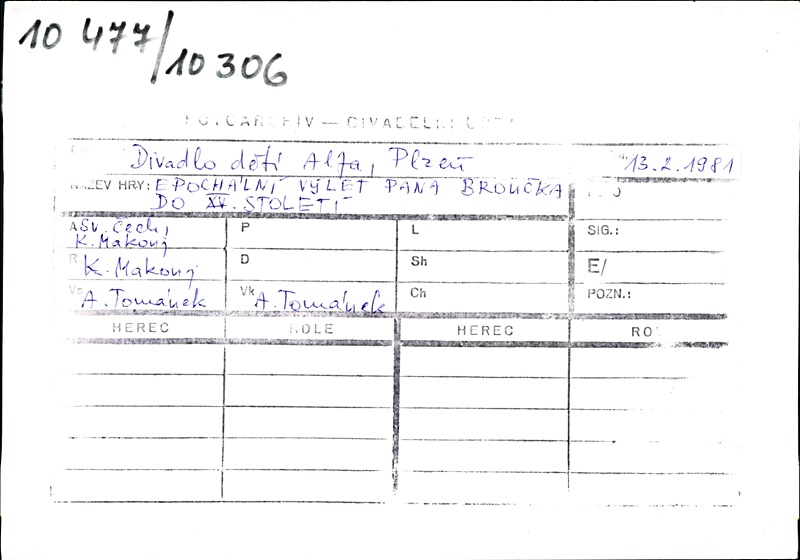 10 477/10 306
FOTOARCHIV — DIVADELNÍ
Divadlo dětí Alfa, Plzeň 13.2.1981
NÁZEV HRY: EPOCHÁLNÍ VÝLET PANA BROUČKA
DO XV. STOLETÍ
A Sv. Čech, P L SIG.:
K. Makonj
R K. Makonj D Sh E/
Vs A. Tománek Vk A. Tománek Ch POZN.:
HEREC ROLE HEREC